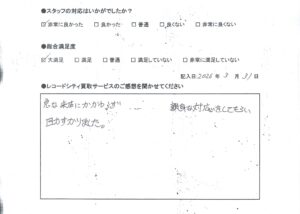 ●スタッフの対応はいかがでしたか?
☑非常に良かった □良かった □普通 □良くない □非常に良くない
●総合満足度
☑大満足 □満足 □普通 □満足していない □非常に満足していない
記入日2026年3月31日
●レコードシティ買取サービスのご感想を聞かせてください
急な来店にかかわらず 親身な対応をしてもらい
助かりました。